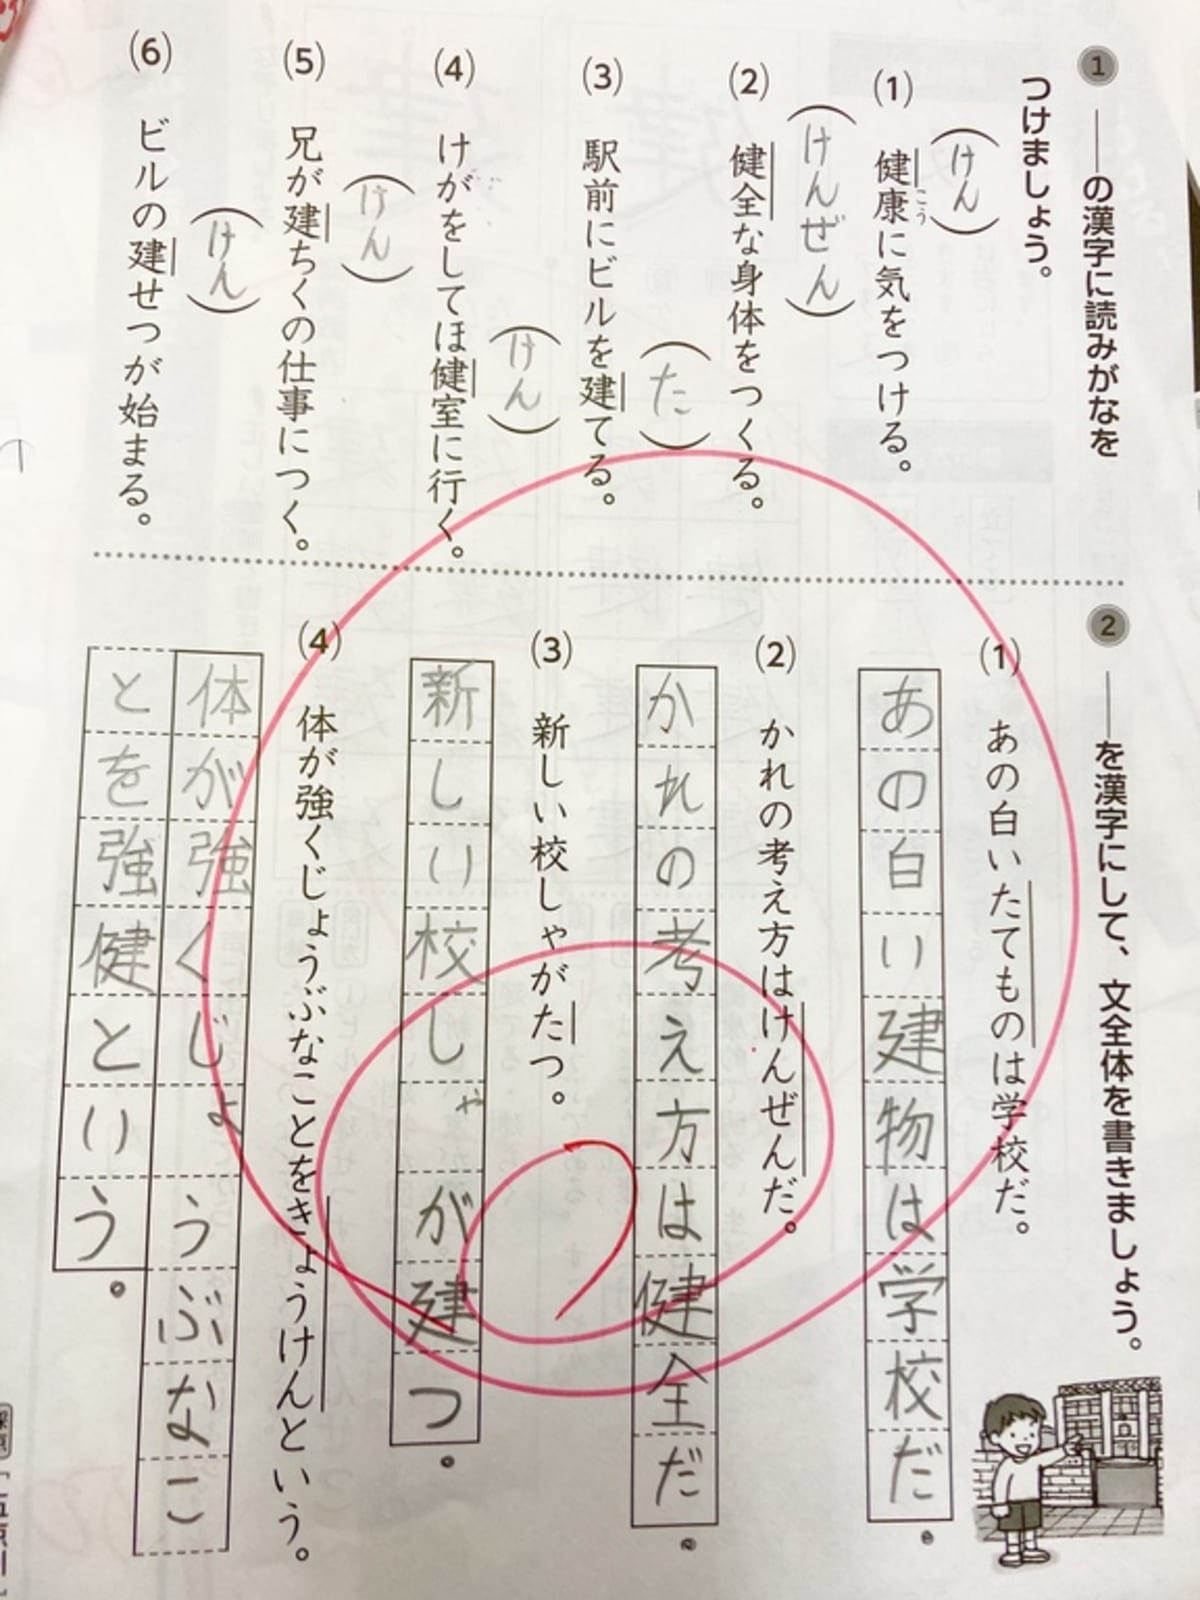 1 ――の漢字に読みがなを
つけましょう。
(けん)
(1) 健康に気をつける。
こう
(けんぜん)
(2) 健全な身体をつくる。
(た)
(3) 駅前にビルを建てる。
(けん)
(4) けがをしてほ健室に行く。
(けん)
(5) 兄が建ちくの仕事につく。
(けん)
(6) ビルの建せつが始まる。
2 ――を漢字にして、文全体を書きましょう。
(1) あの白いたてものは学校だ。
あの白い建物は学校だ。
(2) かれの考え方はけんぜんだ。
かれの考え方は健全だ。
(3) 新しい校しゃがたつ。
新しい校しゃが建つ。
(4) 体が強くじょうぶなことをきょうけんという。
体が強くじょうぶなこ
とを強健という。